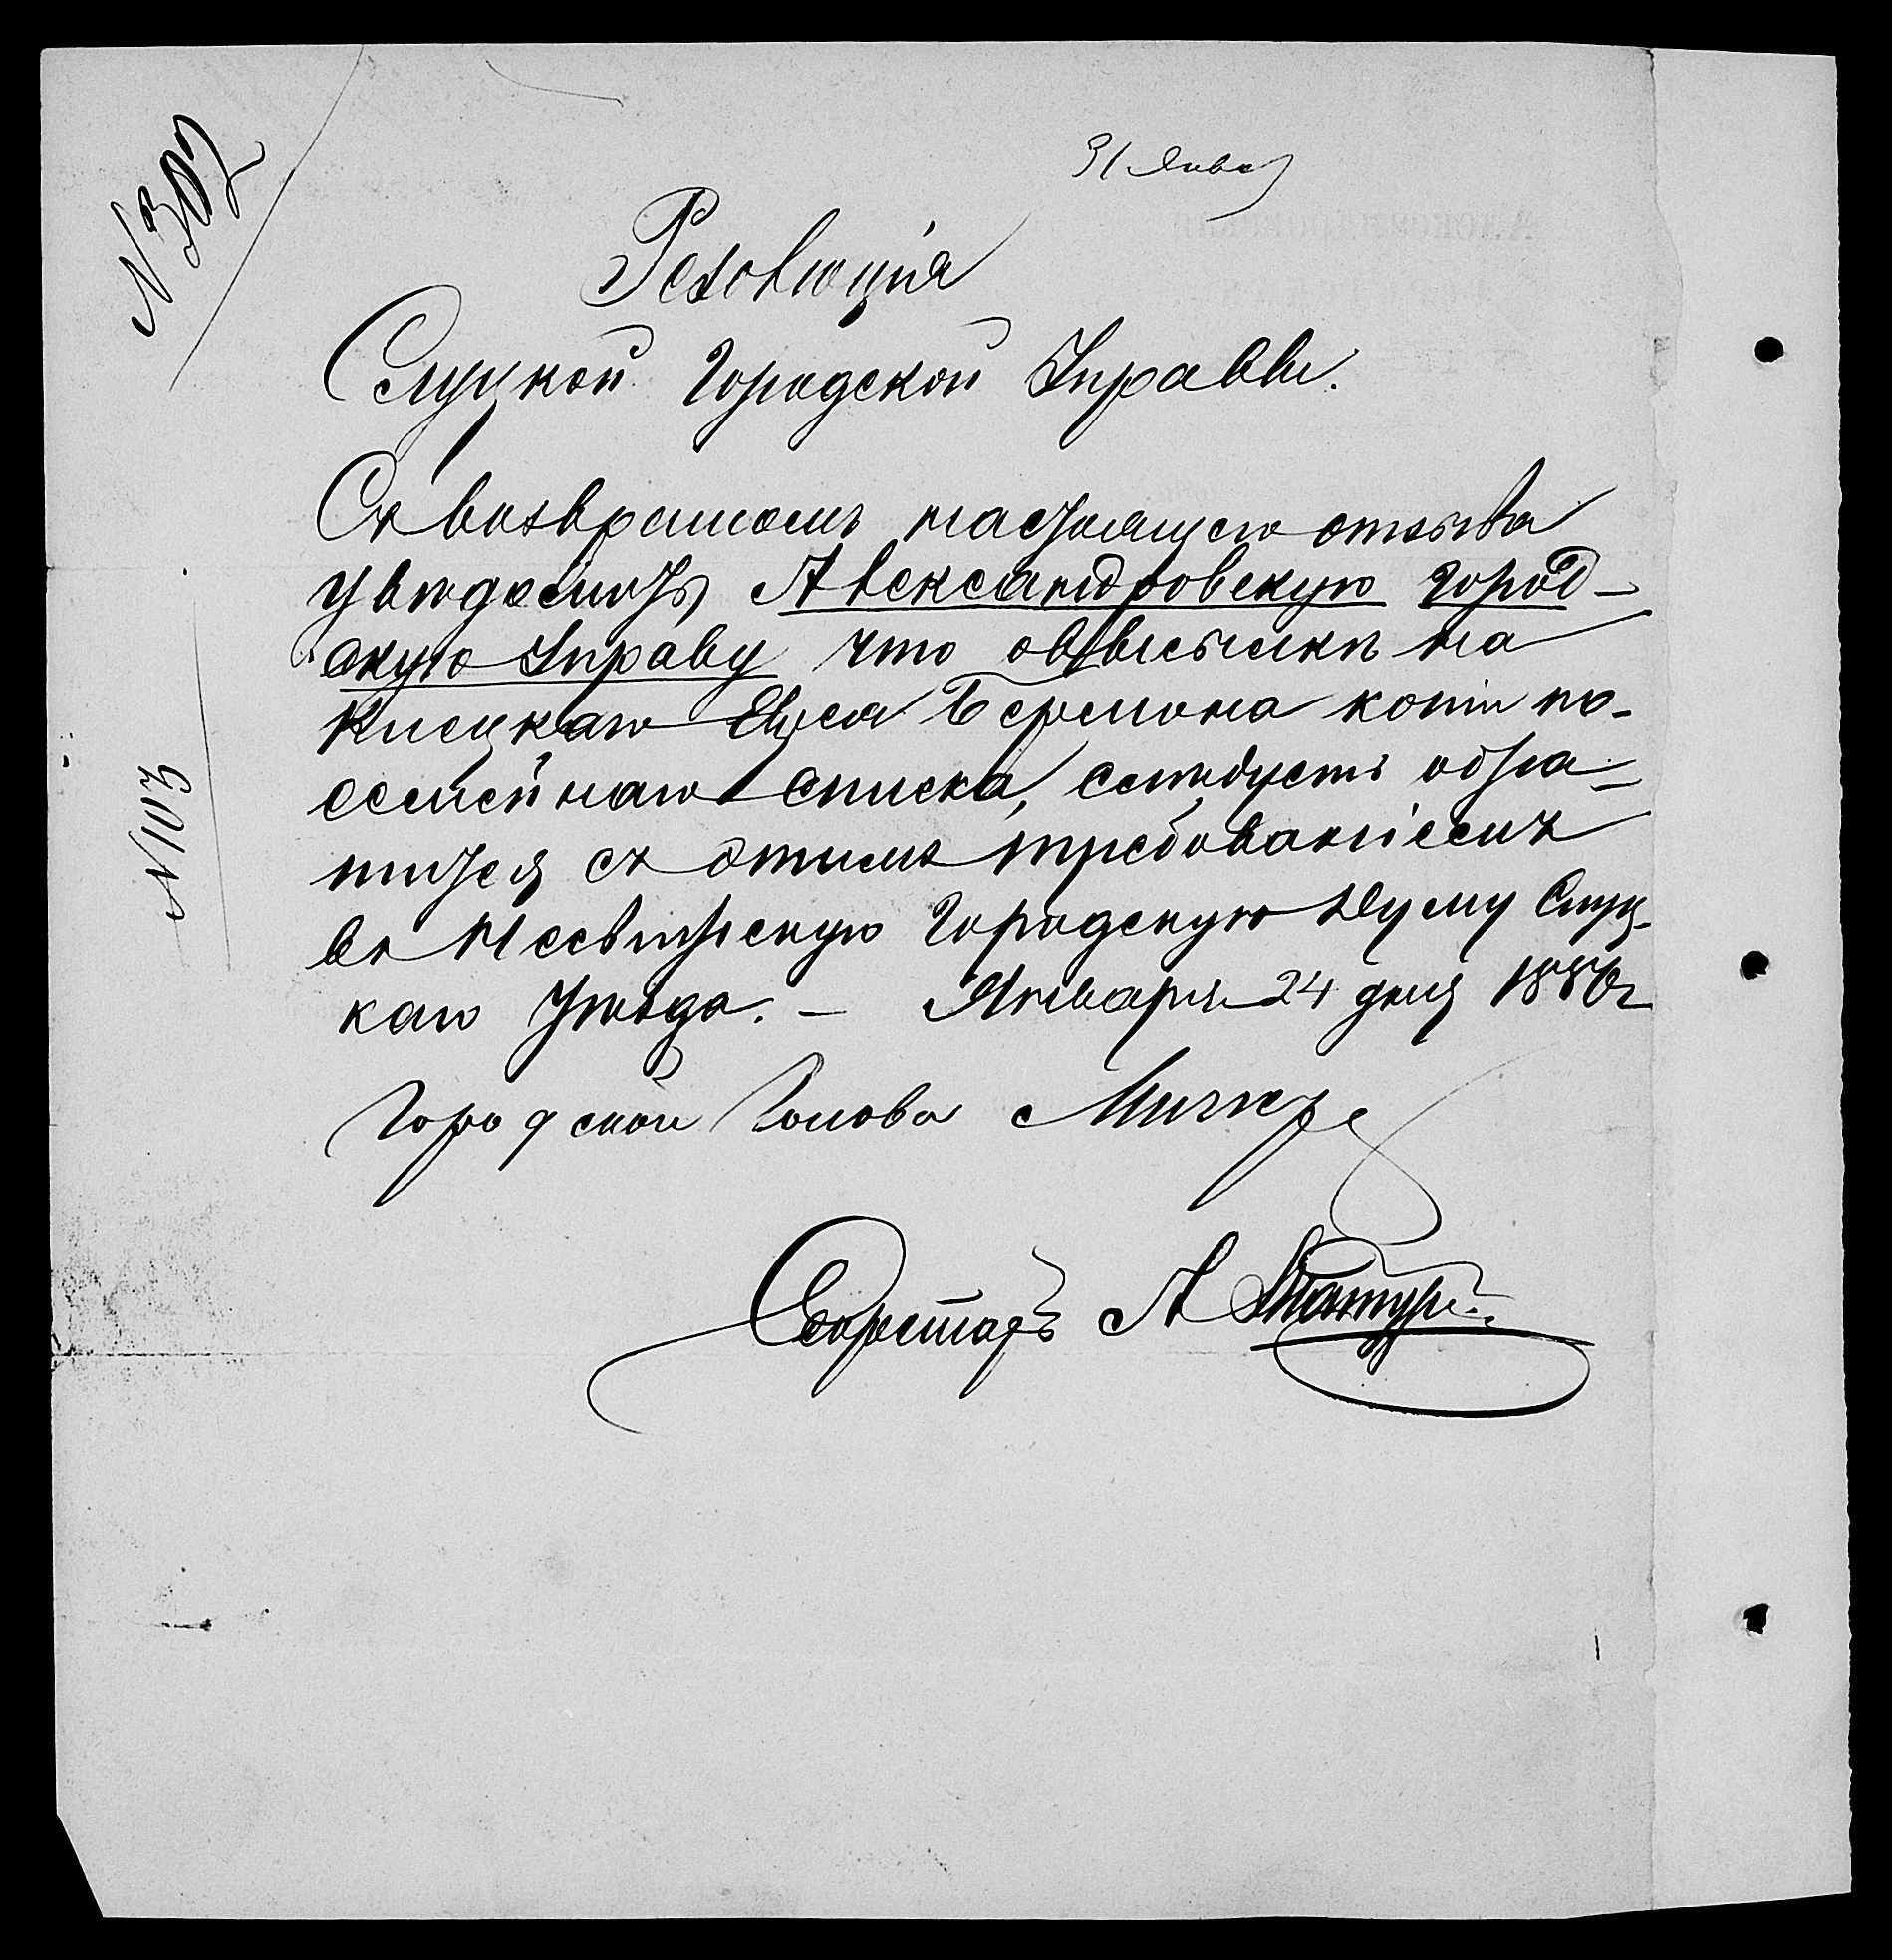 31 Янва
N 307
Резолюція
Слуцкой Городской Управы.
Съ возвратомъ настоящего отзыва
увѣдомить Александровскую Город-
скую Управу что о высылкѣ на
Клецкаго Еврея Бермана копіи по-
семейнаго списка, слѣдуетъ обра-
тится съ этимъ требованіемъ
въ Несвижскую Городскую Думу Слуц-
каго Уѣзда. – Января 24 дня 188 г
N 103
Городской Голова
Секретарь А